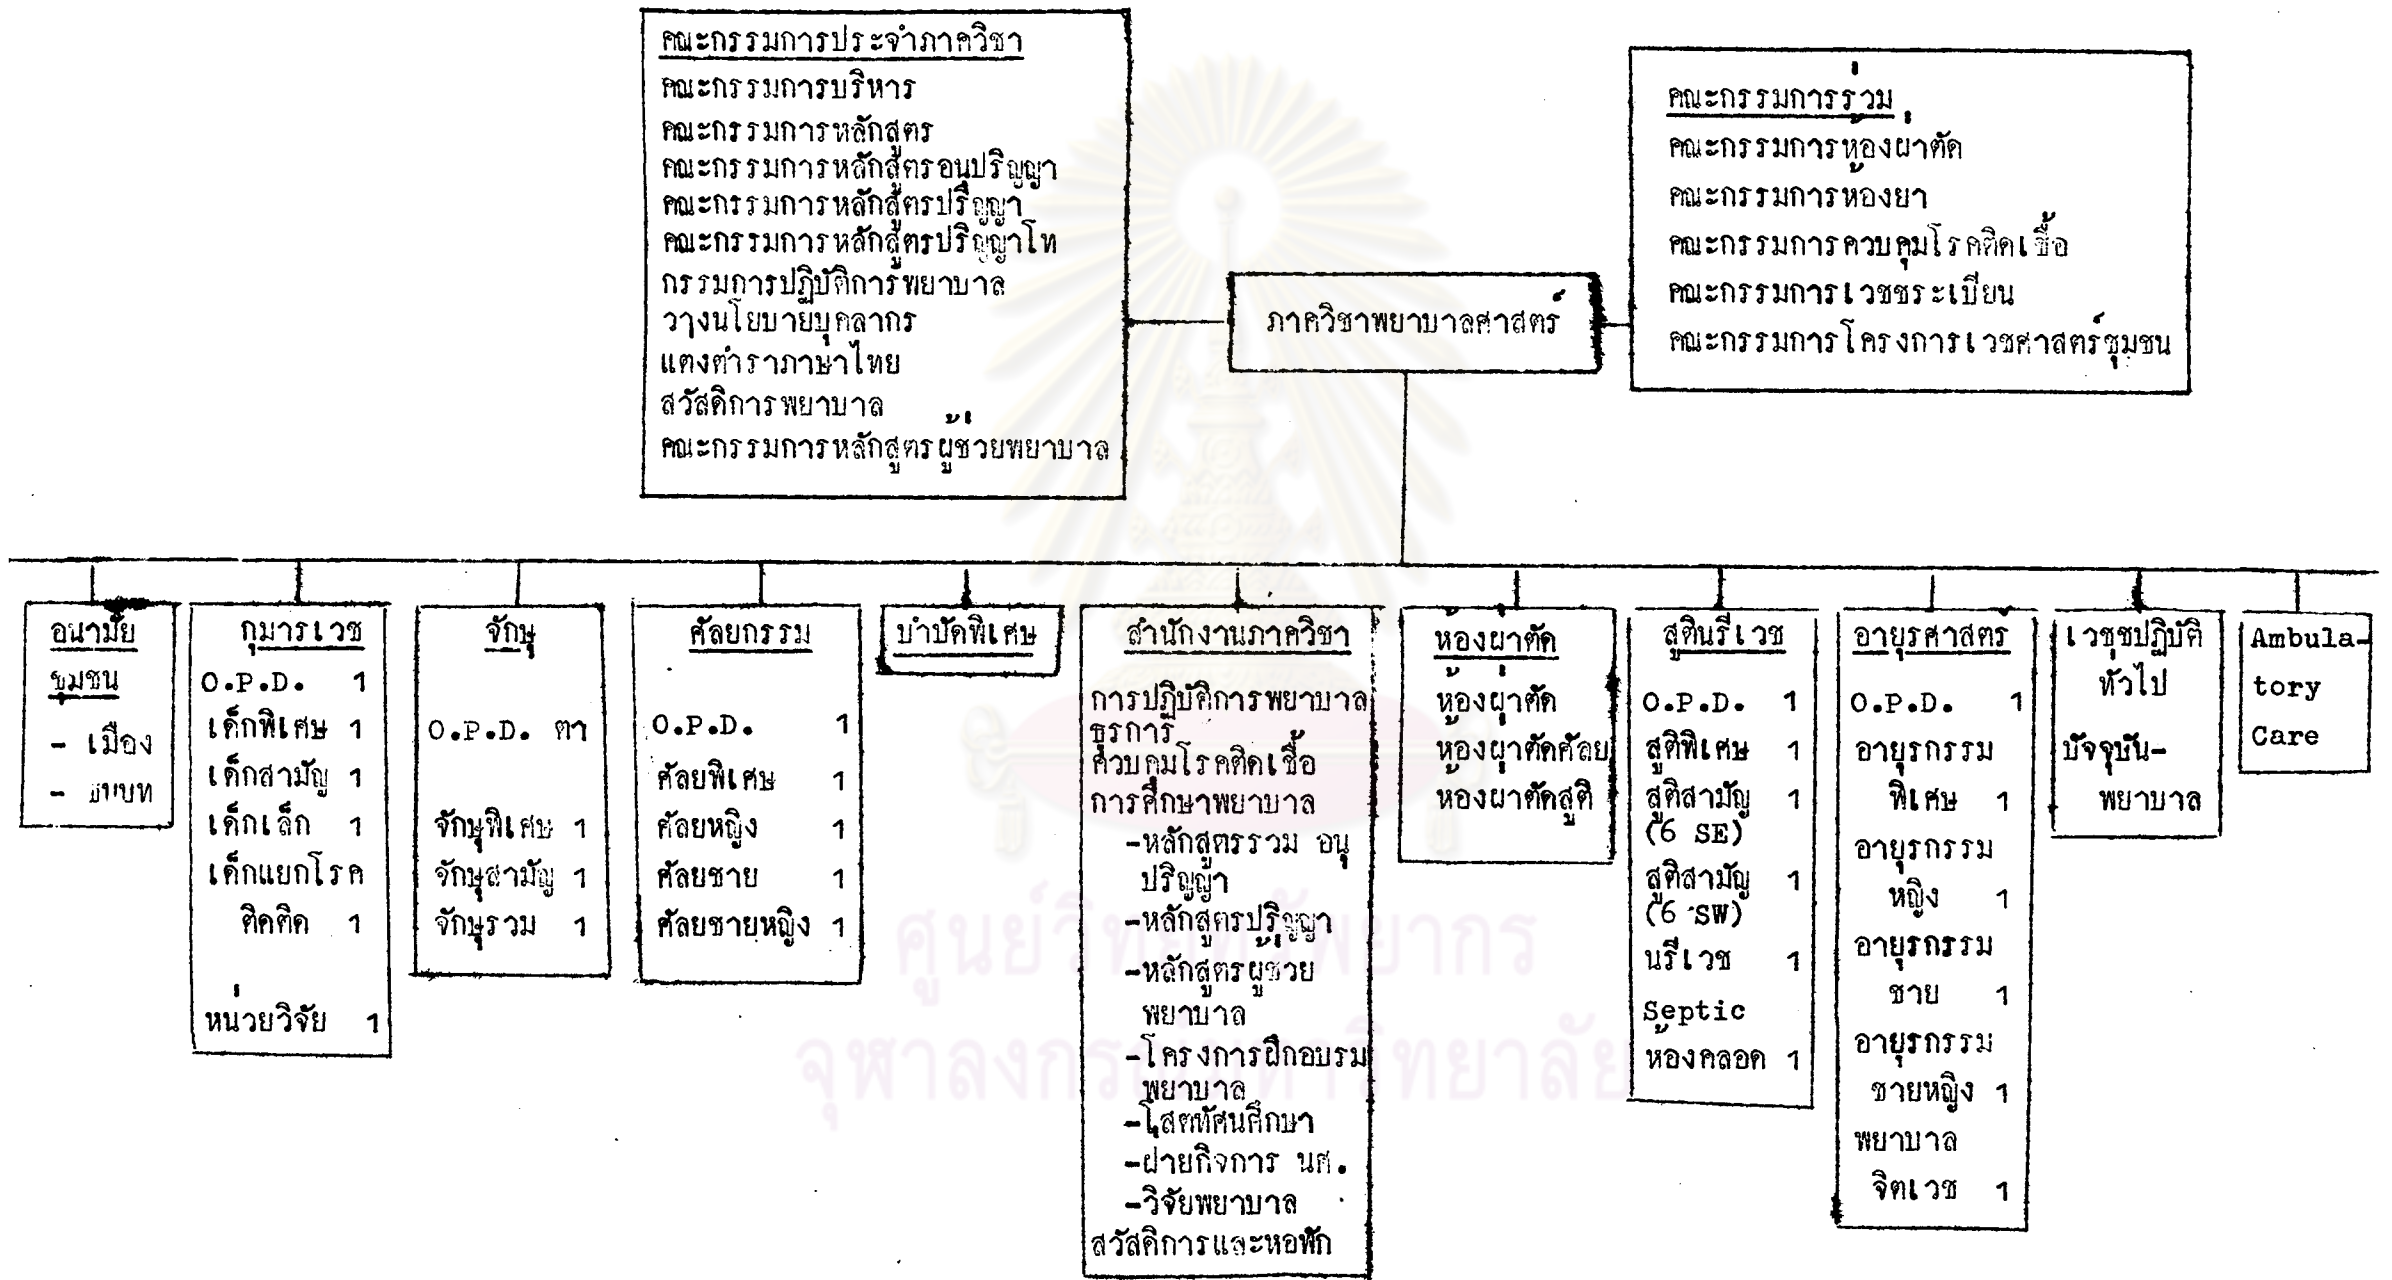 คณะกรรมการประจำภาควิชา
คณะกรรมการบริหาร
คณะกรรมการหลักสูตร
คณะกรรมการหลักสูตรอนุปริญญา
คณะกรรมการหลักสูตรปริญญา
คณะกรรมการหลักสูตรปริญญาโท
กรรมการปฏิบัติการพยาบาล
วางนโยบายบุคลากร
แตงตำราภาษาไทย
สวัสดิการพยาบาล
คณะกรรมการหลักสูตรผู้ช่วยพยาบาล
ภาควิชาพยาบาลศาสตร์
คณะกรรมการร่วม
คณะกรรมการห้องผ่าตัด
คณะกรรมการห้องยา
คณะกรรมการควบคุมโรคติดเชื้อ
คณะกรรมการเวชชระเบียน
คณะกรรมการโครงการเวชศาสตร์ชุมชน
อนามัย
ชุมชน
- เมือง
- ชนบท
กุมารเวช
O.P.D. 1
เด็กพิเศษ 1
เด็กสามัญ 1
เด็กเล็ก 1
เด็กแยกโรค
ติดติด 1
หน่วยวิจัย 1
จักษุ
O.P.D. ตา
จักษุพิเศษ 1
จักษุสามัญ 1
จักษุรวม 1
ศัลยกรรม
O.P.D. 1
ศัลยพิเศษ 1
ศัลยหญิง 1
ศัลยชาย 1
ศัลยชายหญิง 1
บำบัดพิเศษ
สำนักงานภาควิชา
การปฏิบัติการพยาบาล
ธุรการ
ควบคุมโรคติดเชื้อ
การศึกษาพยาบาล
-หลักสูตรรวม อนุ
ปริญญา
-หลักสูตรปริญญา
-หลักสูตรผู้ช่วย
พยาบาล
-โครงการฝึกอบรม
พยาบาล
-โสตทัศนศึกษา
-ฝ่ายกิจการ นศ.
-วิจัยพยาบาล
สวัสดิการและหอพัก
ห้องผ่าตัด
ห้องผ่าตัด
ห้องผ่าตัดศัลย
ห้องผาตัดสูติ
สูตินรีเวช
O.P.D. 1
สูติพิเศษ 1
สูติสามัญ 1
(6 SE)
สูติสามัญ 1
(6 SW)
นรีเวช 1
Septic
ห้องคลอด 1
อายุรศาสตร์
O.P.D. 1
อายุรกรรม
พิเศษ 1
อายุรกรรม
หญิง 1
อายุรกรรม
ชาย 1
อายุรกรรม
ชายหญิง 1
พยาบาล
จิตเวช 1
เวชชปฏิบัติ
ทั่วไป
ปัจจุบัน-
พยาบาล
Ambula-
tory
Care
ศูนย์วิทยทรัพยากร
จุฬาลงกรณ์มหาวิทยาลัย